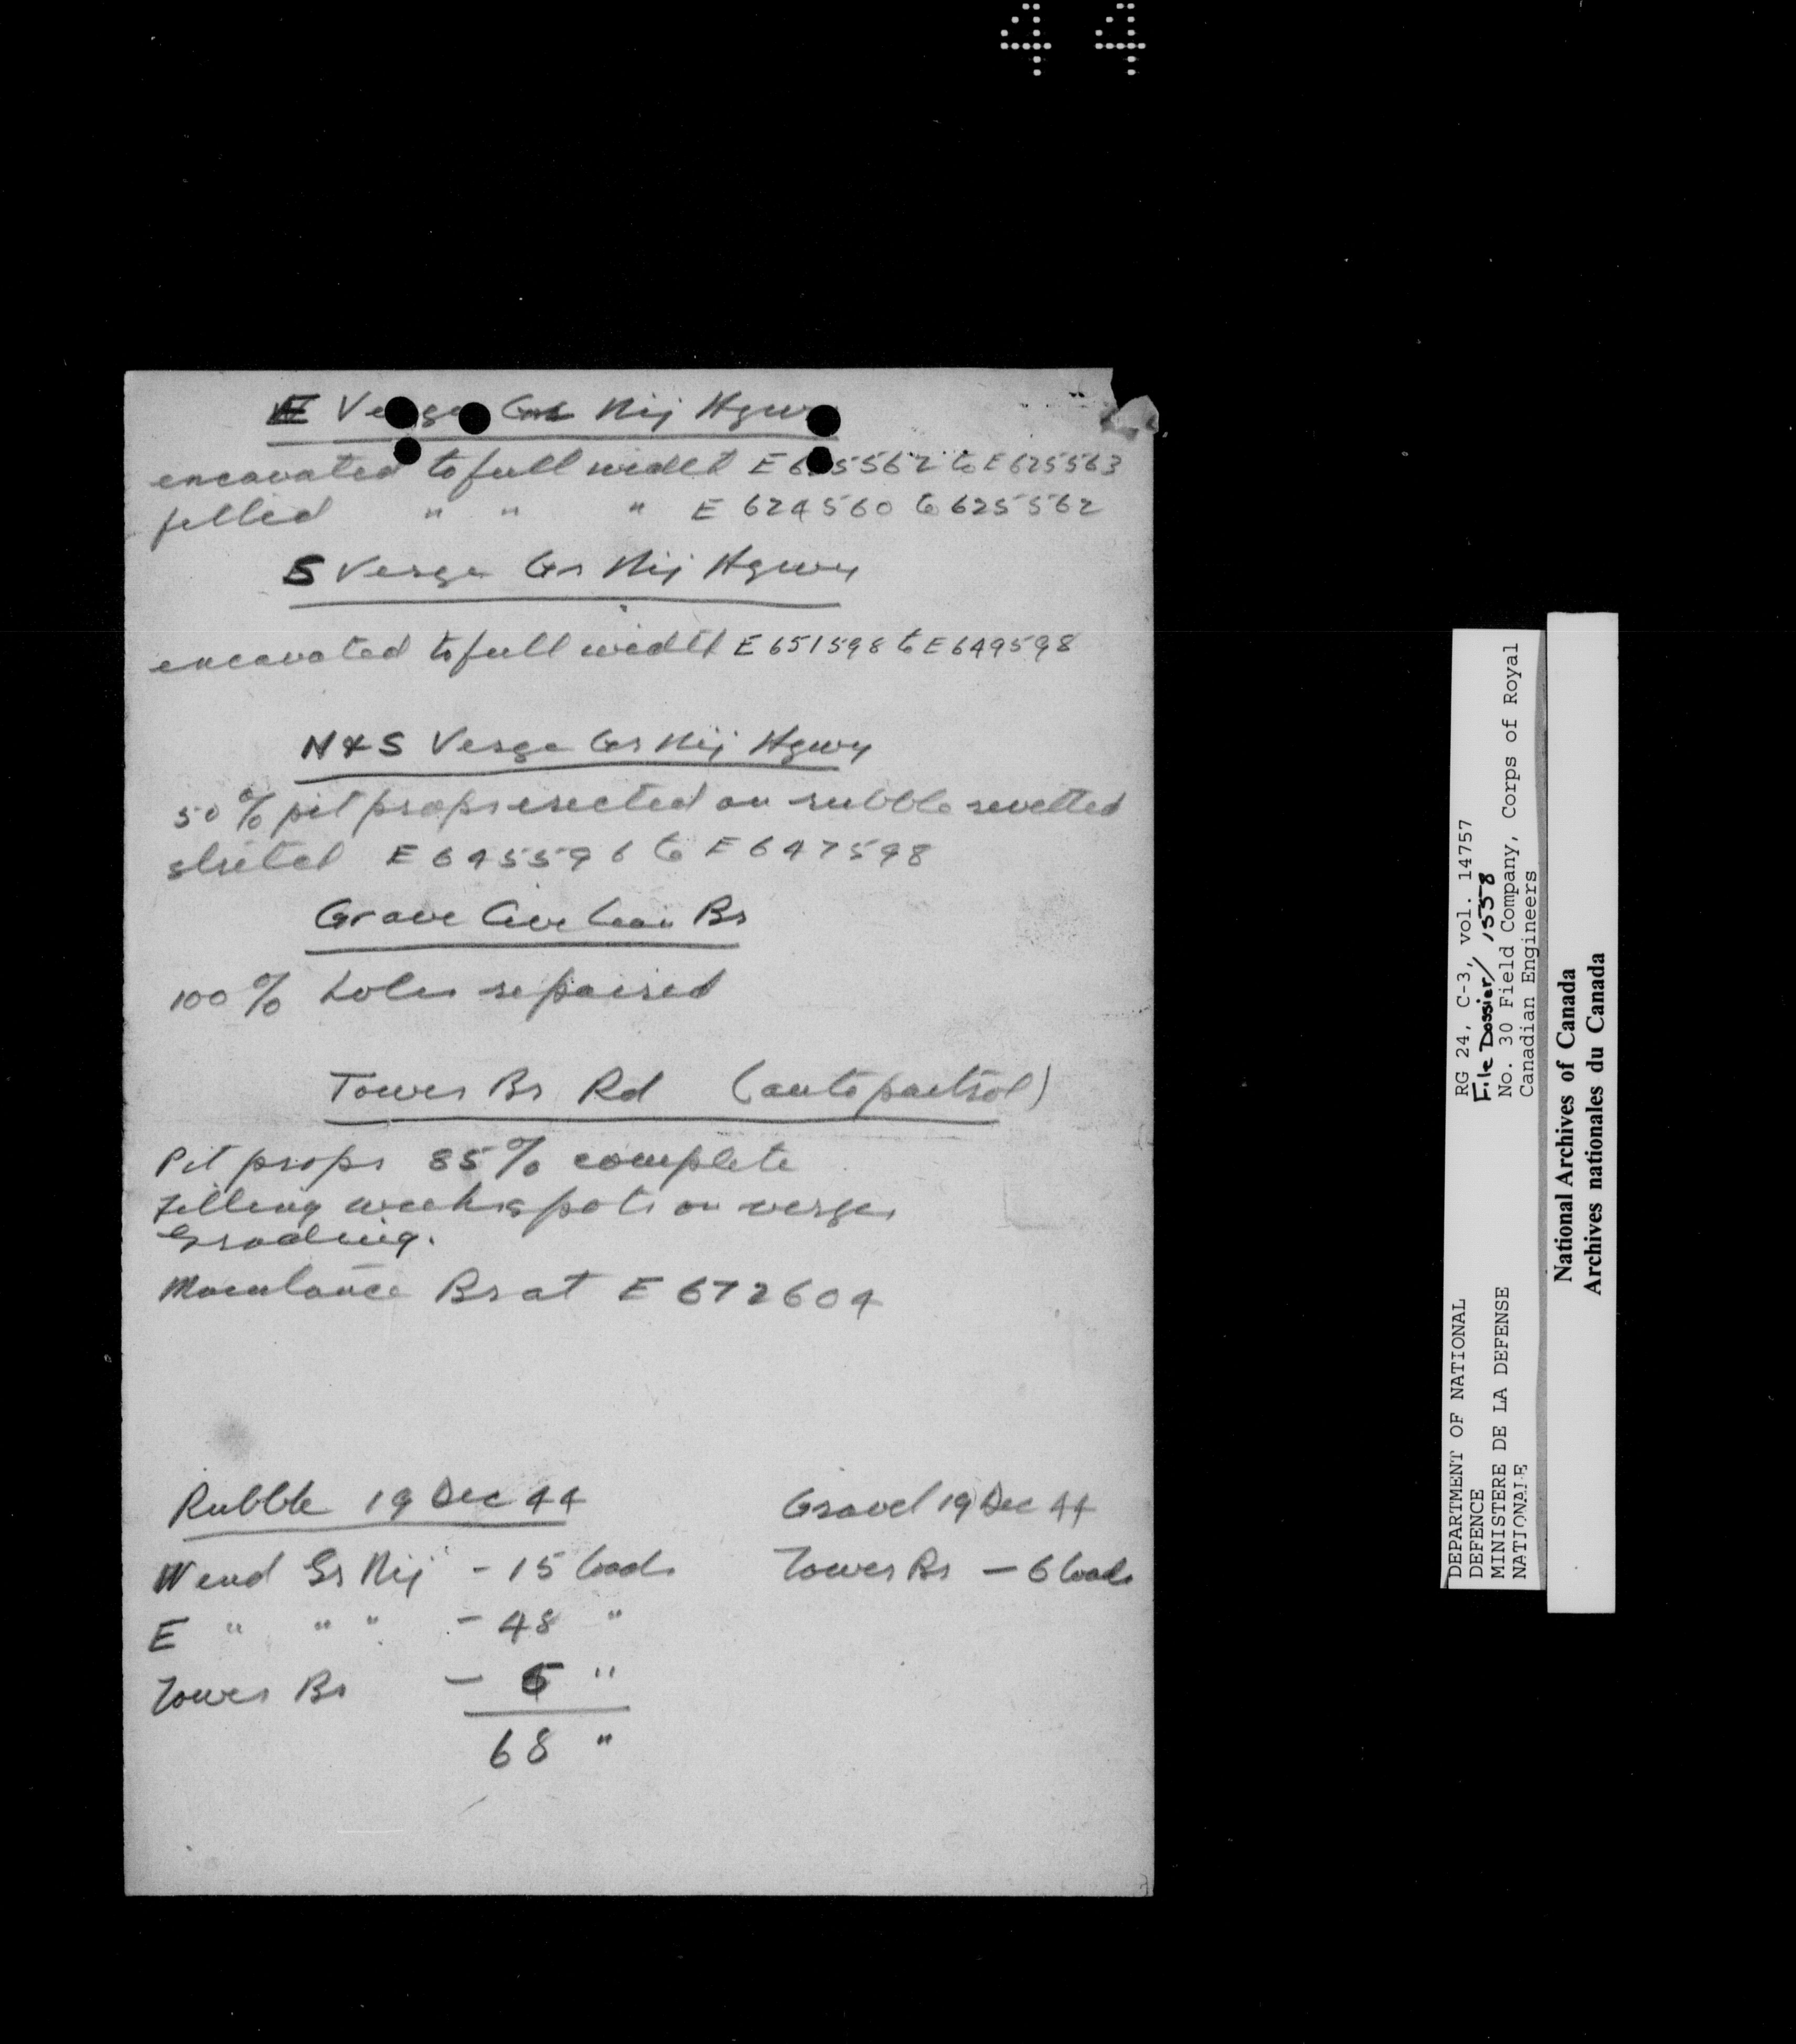 44
E Verge Gr Nij Hgwy
excavated to full width E 625562 to E 625563
filled " " " E 624560 to 625562
S Verge Gr Nij Hgwy
excavated to full width E 651598 to E 649598
N & S Verge Gr Nij Hgwy
50% pit props erected on rubble revetted
stretch E 645596 to E 647598
Grave Br
100% holes repaired
Tower Br Rd (auto paetrol)
Pit props 85% complete
Filling weak spots on verges
Grading.
Br at E 672604
Rubble 19 Dec 44
W end Gr Nij - 15 loads
E " " " - 48 "
Tower Br - 5 "
68 "
Gravel 19 Dec 44
Tower Br - 6 loads
DEPARTMENT OF NATIONAL
DEFENCE
MINISTERE DE LA DEFENSE
NATIONALE
RG 24, C-3, vol. 14757
File Dossier/ 1558
No. 30 Field Company, Corps of Royal
Canadian Engineers
National Archives of Canada
Archives nationales du Canada